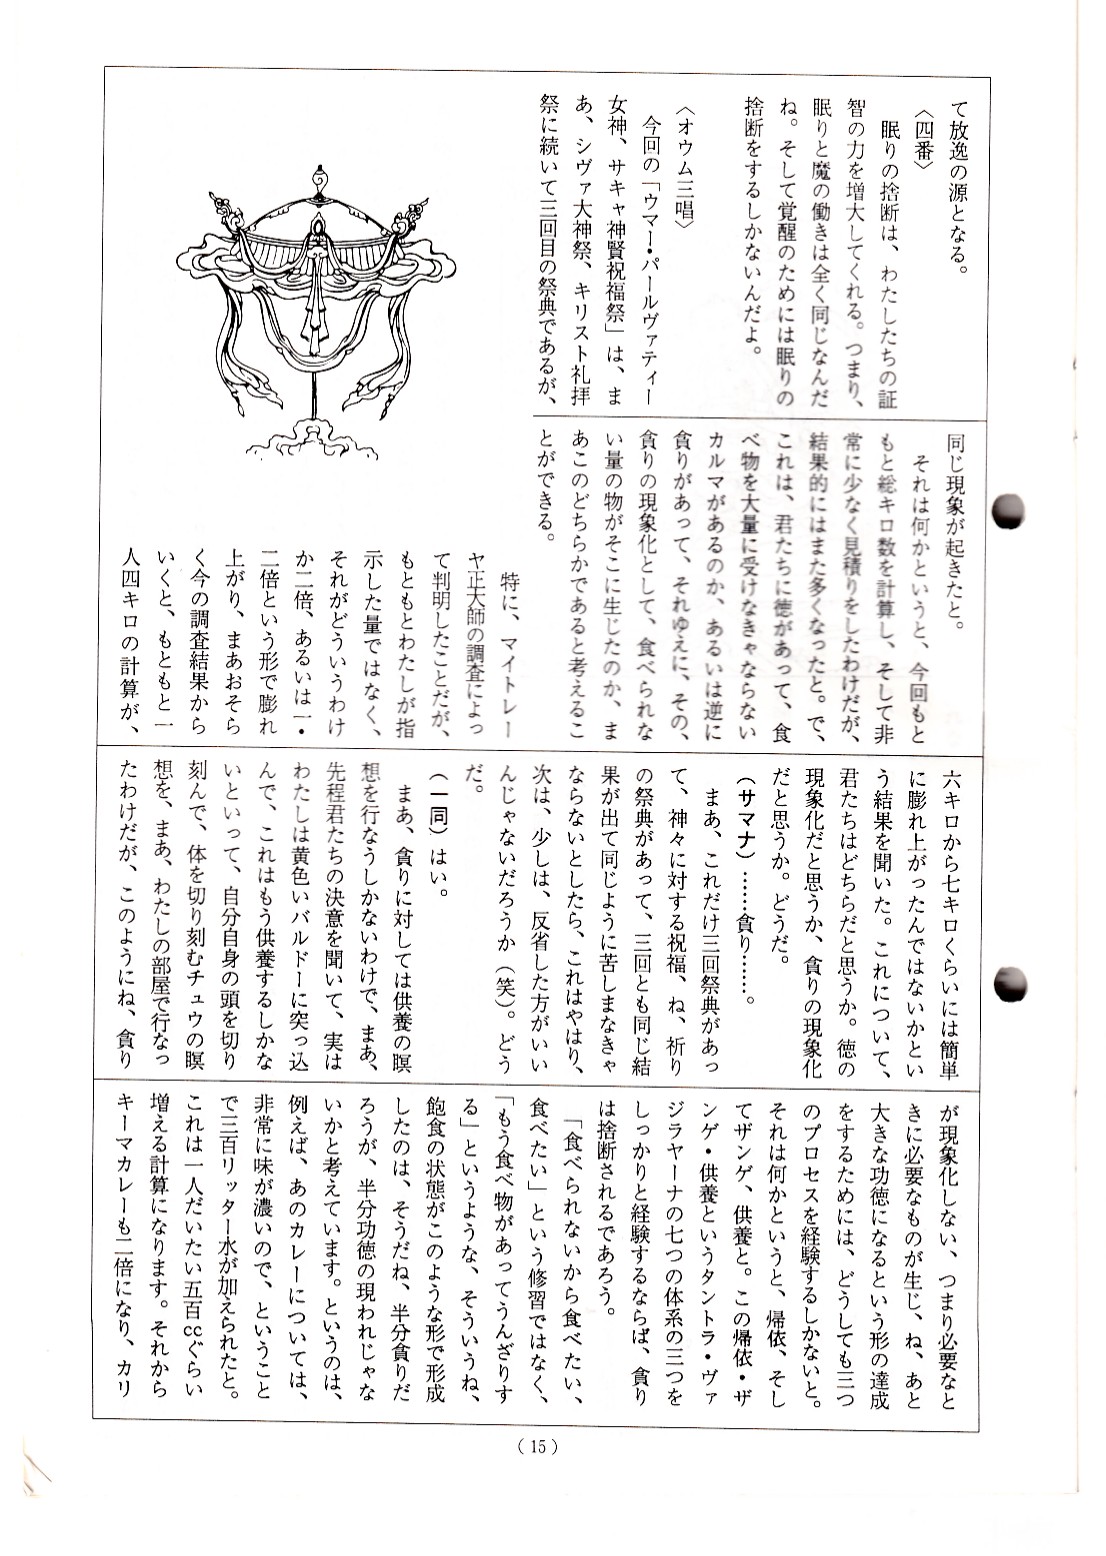 て放逸の源となる。
〈四番〉
眠りの捨断は、わたしたちの証
智の力を増大してくれる。つまり、
眠りと魔の働きは全く同じなんだ
ね。そして覚醒のためには眠りの
捨断をするしかないんだよ。
〈オウム三唱〉
今回の「ウマー・パールヴァティー
女神、サキャ神賢祝福祭」は、ま
あ、シヴァ大神祭、キリスト礼拝
祭に続いて三回目の祭典であるが、
同じ現象が起きたと。
それは何かというと、今回もと
もと総キロ数を計算し、そして非
常に少なく見積りをしたわけだが、
結果的にはまた多くなったと。で、
これは、君たちに徳があって、食
べ物を大量に受けなきゃならない
カルマがあるのか、あるいは逆に
貪りがあって、それゆえに、その、
貪りの現象化として、食べられな
い量の物がそこに生じたのか、ま
あこのどちらかであると考えるこ
とができる。
特に、マイトレー
ヤ正大師の調査によっ
て判明したことだが、
もともとわたしが指
示した量ではなく、
それがどういうわけ
か二倍、あるいは一・
二倍という形で膨れ
上がり、まあおそら
く今の調査結果から
いくと、もともと一
人四キロの計算が、
六キロから七キロくらいには簡単
に膨れ上がったんではないかとい
う結果を聞いた。これについて、
君たちはどちらだと思うか。徳の
現象化だと思うか、貪りの現象化
だと思うか。どうだ。
（サマナ）……貪り……。
まあ、これだけ三回祭典があっ
て、神々に対する祝福、ね、祈り
の祭典があって、三回とも同じ結
果が出て同じように苦しまなきゃ
ならないとしたら、これはやはり、
次は、少しは、反省した方がいい
んじゃないだろうか（笑）。どう
だ。
（一同）はい。
まあ、貪りに対しては供養の瞑
想を行なうしかないわけで、まあ、
先程君たちの決意を聞いて、実は
わたしは黄色いバルドーに突っ込
んで、これはもう供養するしかな
いといって、自分自身の頭を切り
刻んで、体を切り刻むチュウの瞑
想を、まあ、わたしの部屋で行なっ
たわけだが、このようにね、貪り
が現象化しない、つまり必要なと
きに必要なものが生じ、ね、あと
大きな功徳になるという形の達成
をするためには、どうしても三つ
のプロセスを経験するしかないと。
それは何かというと、帰依、そし
てザンゲ、供養と。この帰依・ザ
ンゲ・供養というタントラ・ヴァ
ジラヤーナの七つの体系の三つを
しっかりと経験するならば、貪り
は捨断されるであろう。
「食べられないから食べたい、
食べたい」という修習ではなく、
「もう食べ物があってうんざりす
る」というような、そういうね、
飽食の状態がこのような形で形成
したのは、そうだね、半分貪りだ
ろうが、半分功徳の現われじゃな
いかと考えています。というのは、
例えば、あのカレーについては、
非常に味が濃いので、ということ
で三百リッター水が加えられたと。
これは一人だいたい五百ccぐらい
増える計算になります。それから
キーマカレーも二倍になり、カリ
（15）